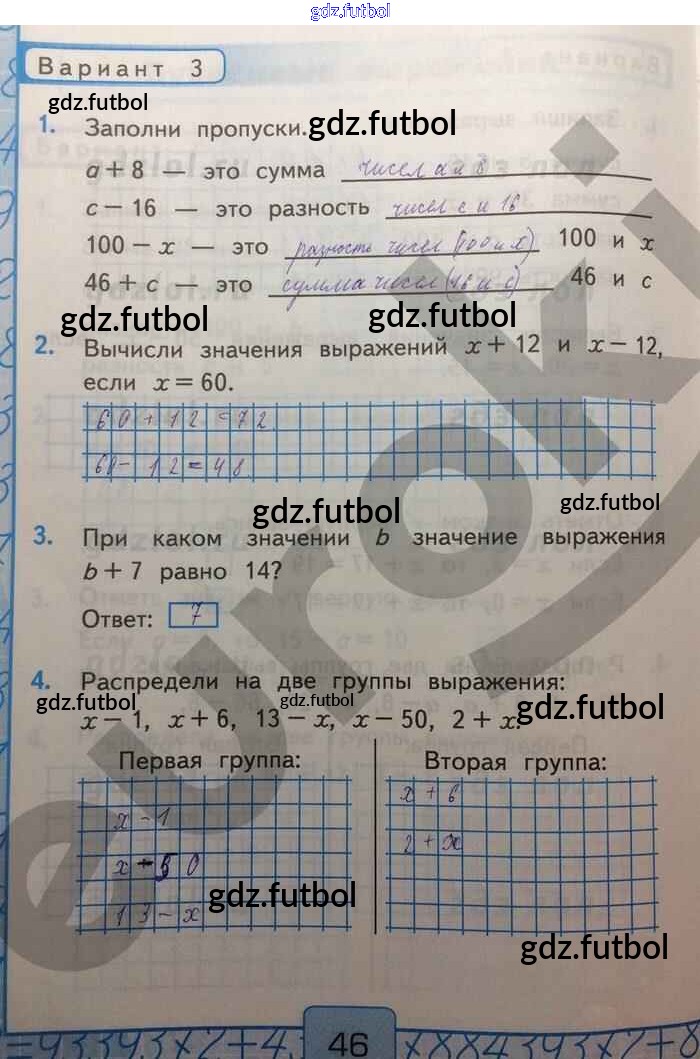 gdz.futbol
Вариант 3
gdz.futbol
1. Заполни пропуски. gdz.futbol
a + 8 — это сумма чисел a и 8
c − 16 — это разность чисел c и 16
100 − x — это разность чисел (100 и x) 100 и x
46 + c — это сумма чисел (46 и c) 46 и c
gdz.futbol gdz.futbol
2. Вычисли значения выражений x + 12 и x − 12,
если x = 60.
60 + 12 = 72
60 − 12 = 48
gdz.futbol gdz.futbol
3. При каком значении b значение выражения
b + 7 равно 14?
Ответ: 7
4. Распредели на две группы выражения:
gdz.futbol gdz.futbol gdz.futbol
x − 1, x + 6, 13 − x, x − 50, 2 + x.
Первая группа: Вторая группа:
x + 6
x − 1
2 + x
x − 50
13 − x
gdz.futbol
gdz.futbol
euroki
46